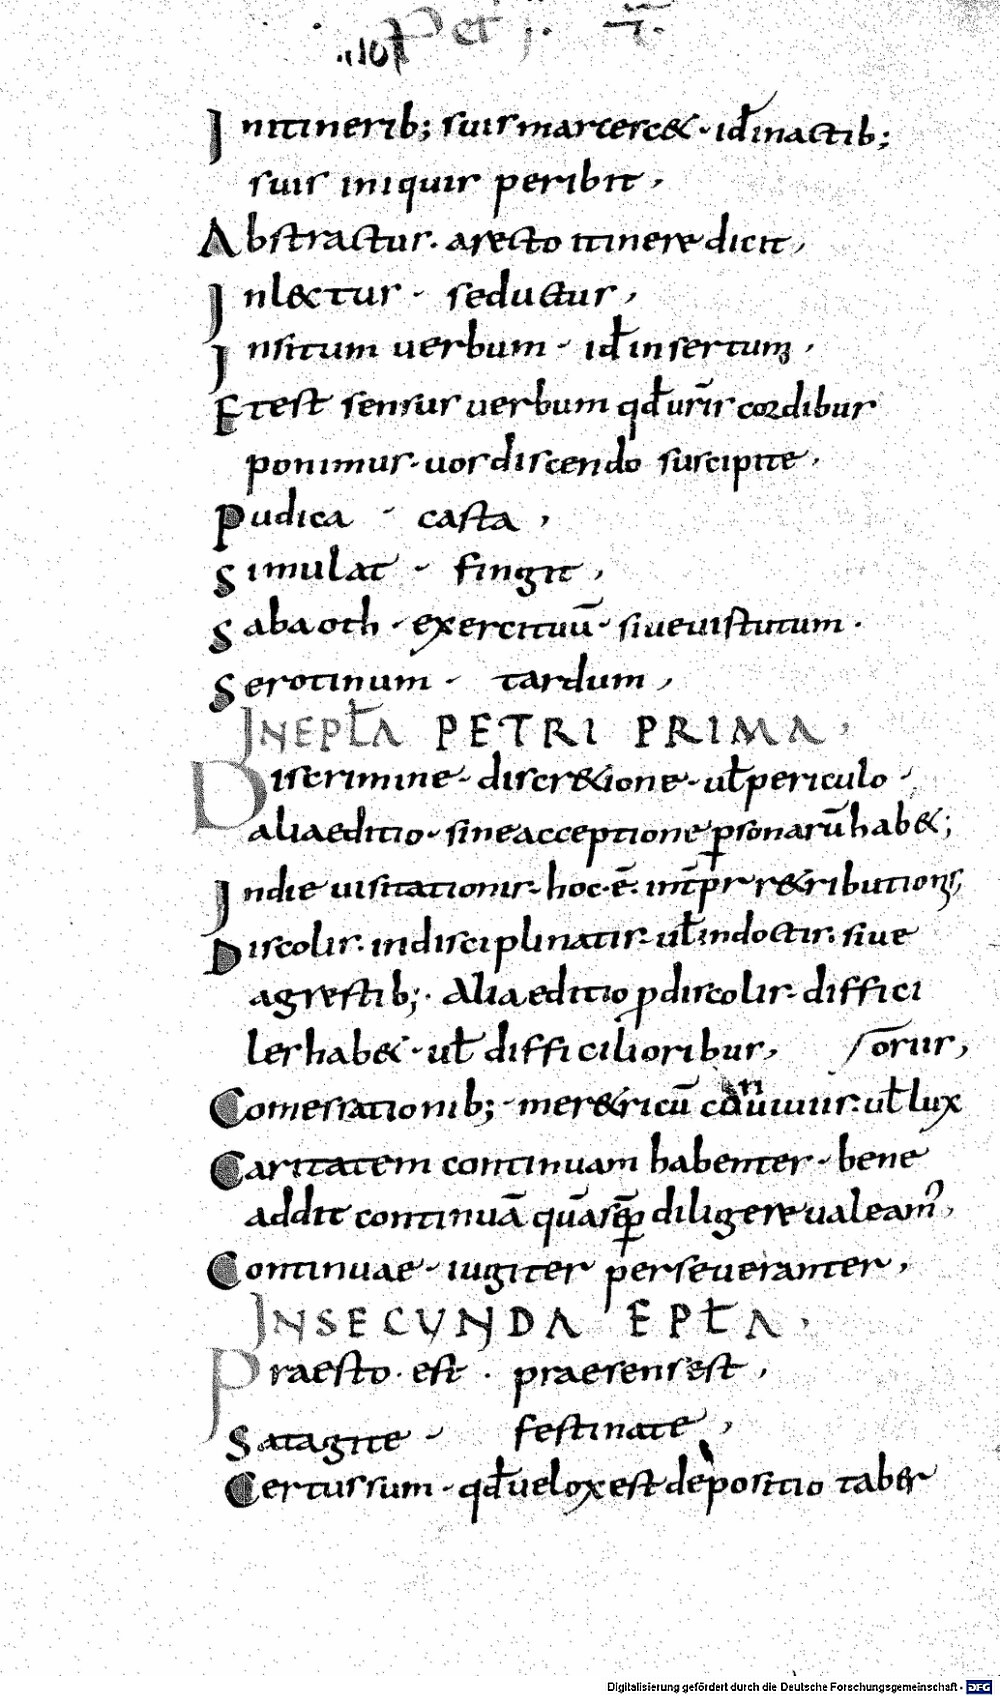 Pet i. .
Initinerib; suis marcesc&. id̄ inactib;
suis iniquis peribit,
Abstractus. arecto itinere dicit,
Inl&ctus. seductus,
Insitum verbum. id̄ insertum,
Etest sensus verbum qd̄ ur̄is cordibus
ponimus. uos discendo suscipite,
Pudica. casta,
Simulat. fingit,
Sabaoth. exercituū. siue uirtutum.
Serotinum. tardum,
IN EPŁA PETRI PRIMA,
Discrimine. discr&ione. uł periculo.
alia editio. sine acceptione ꝑsonarū hab&;
Indie uisitationis. hoc. ē. int̄ꝑs r&ributionis,
Discolis. indisciplinatis. uł indoctis. siue
agrestib;. Alia editio ꝓ discolis. diffici
les hab&. uł difficilioribus, sorus,
Comessationib;. mer&ricū conuiuiis. uł lux
Caritatem continuam habentes. bene
addit continuā quā sēꝑ diligere ualeam̉,
Continuae. iugiter perseuerantes,
IN SECUNDA EPŁA,
Praesto. est. praesens est,
Satagite. festinate,
Certus sum. qd̄ uelox est depositio taber
Digitalisierung gefördert durch die Deutsche Forschungsgemeinschaft - DFG